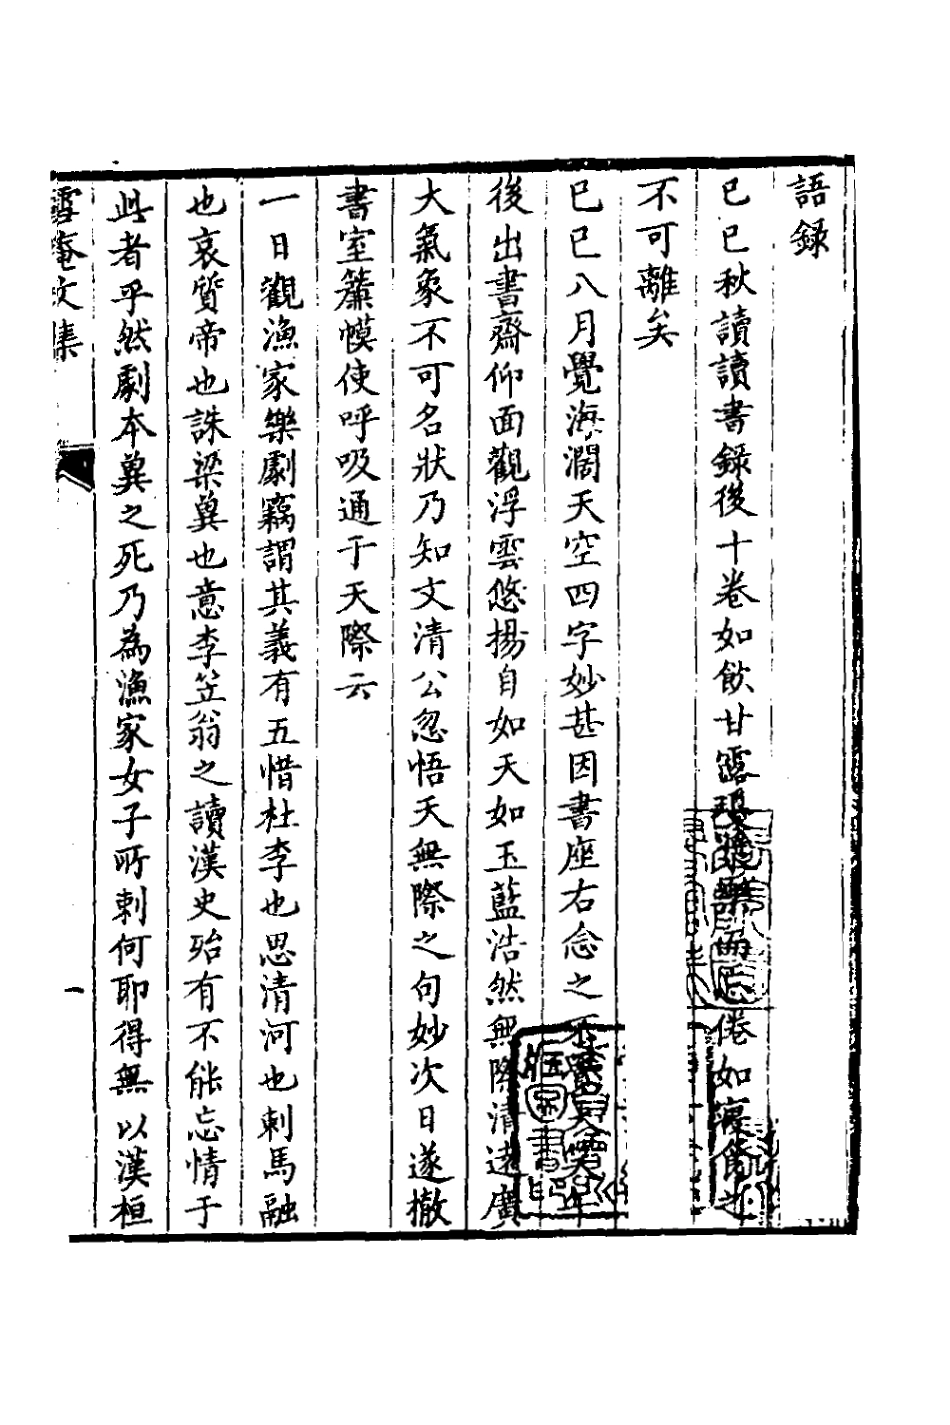 語錄
己巳秋讀讀書錄後十卷如飲甘露聚樂而忘倦如寢食之
不可離矣
己巳八月覺海濶天空四字妙甚因書座右念之
後出書齋仰面觀浮雲悠揚自如天如玉藍浩然無際清遠廣
大氣象不可名狀乃知文清公忽悟天無際之句妙次日遂撤
書室簾幙使呼吸通于天際云
一日觀漁家樂劇竊謂其義有五惜杜李也思清河也刺馬融
也哀質帝也誅梁冀也意李笠翁之讀漢史殆有不能忘情于
此者乎然劇本冀之死乃為漁家女子所刺何耶得無以漢桓
雪菴文集
一